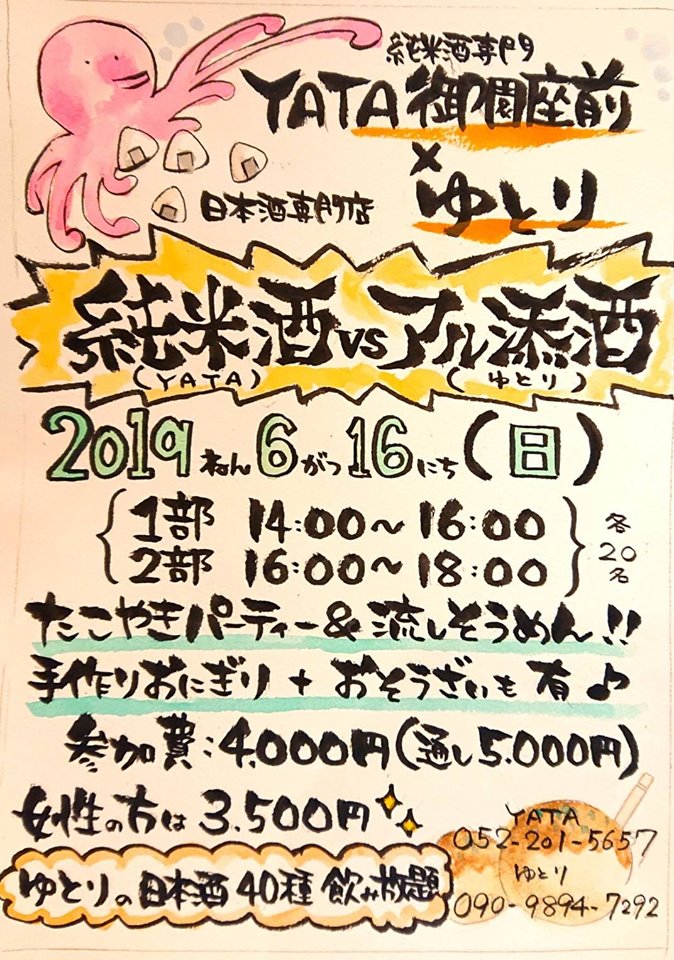 純米酒専門
YATA 御園座前
×
日本酒専門店 ゆとり
純米酒 vs アル添酒
(YATA) (ゆとり)
2019ねん6がつ16にち(日)
1部 14:00~16:00
2部 16:00~18:00
各20名
たこやきパーティー&流しそうめん!!
手作りおにぎり+おそうざいも有♪
参加費:4.000円(通し5.000円)
女性の方は3.500円
ゆとりの日本酒40種飲み放題
YATA
052-201-5657
ゆとり
090-9894-7292